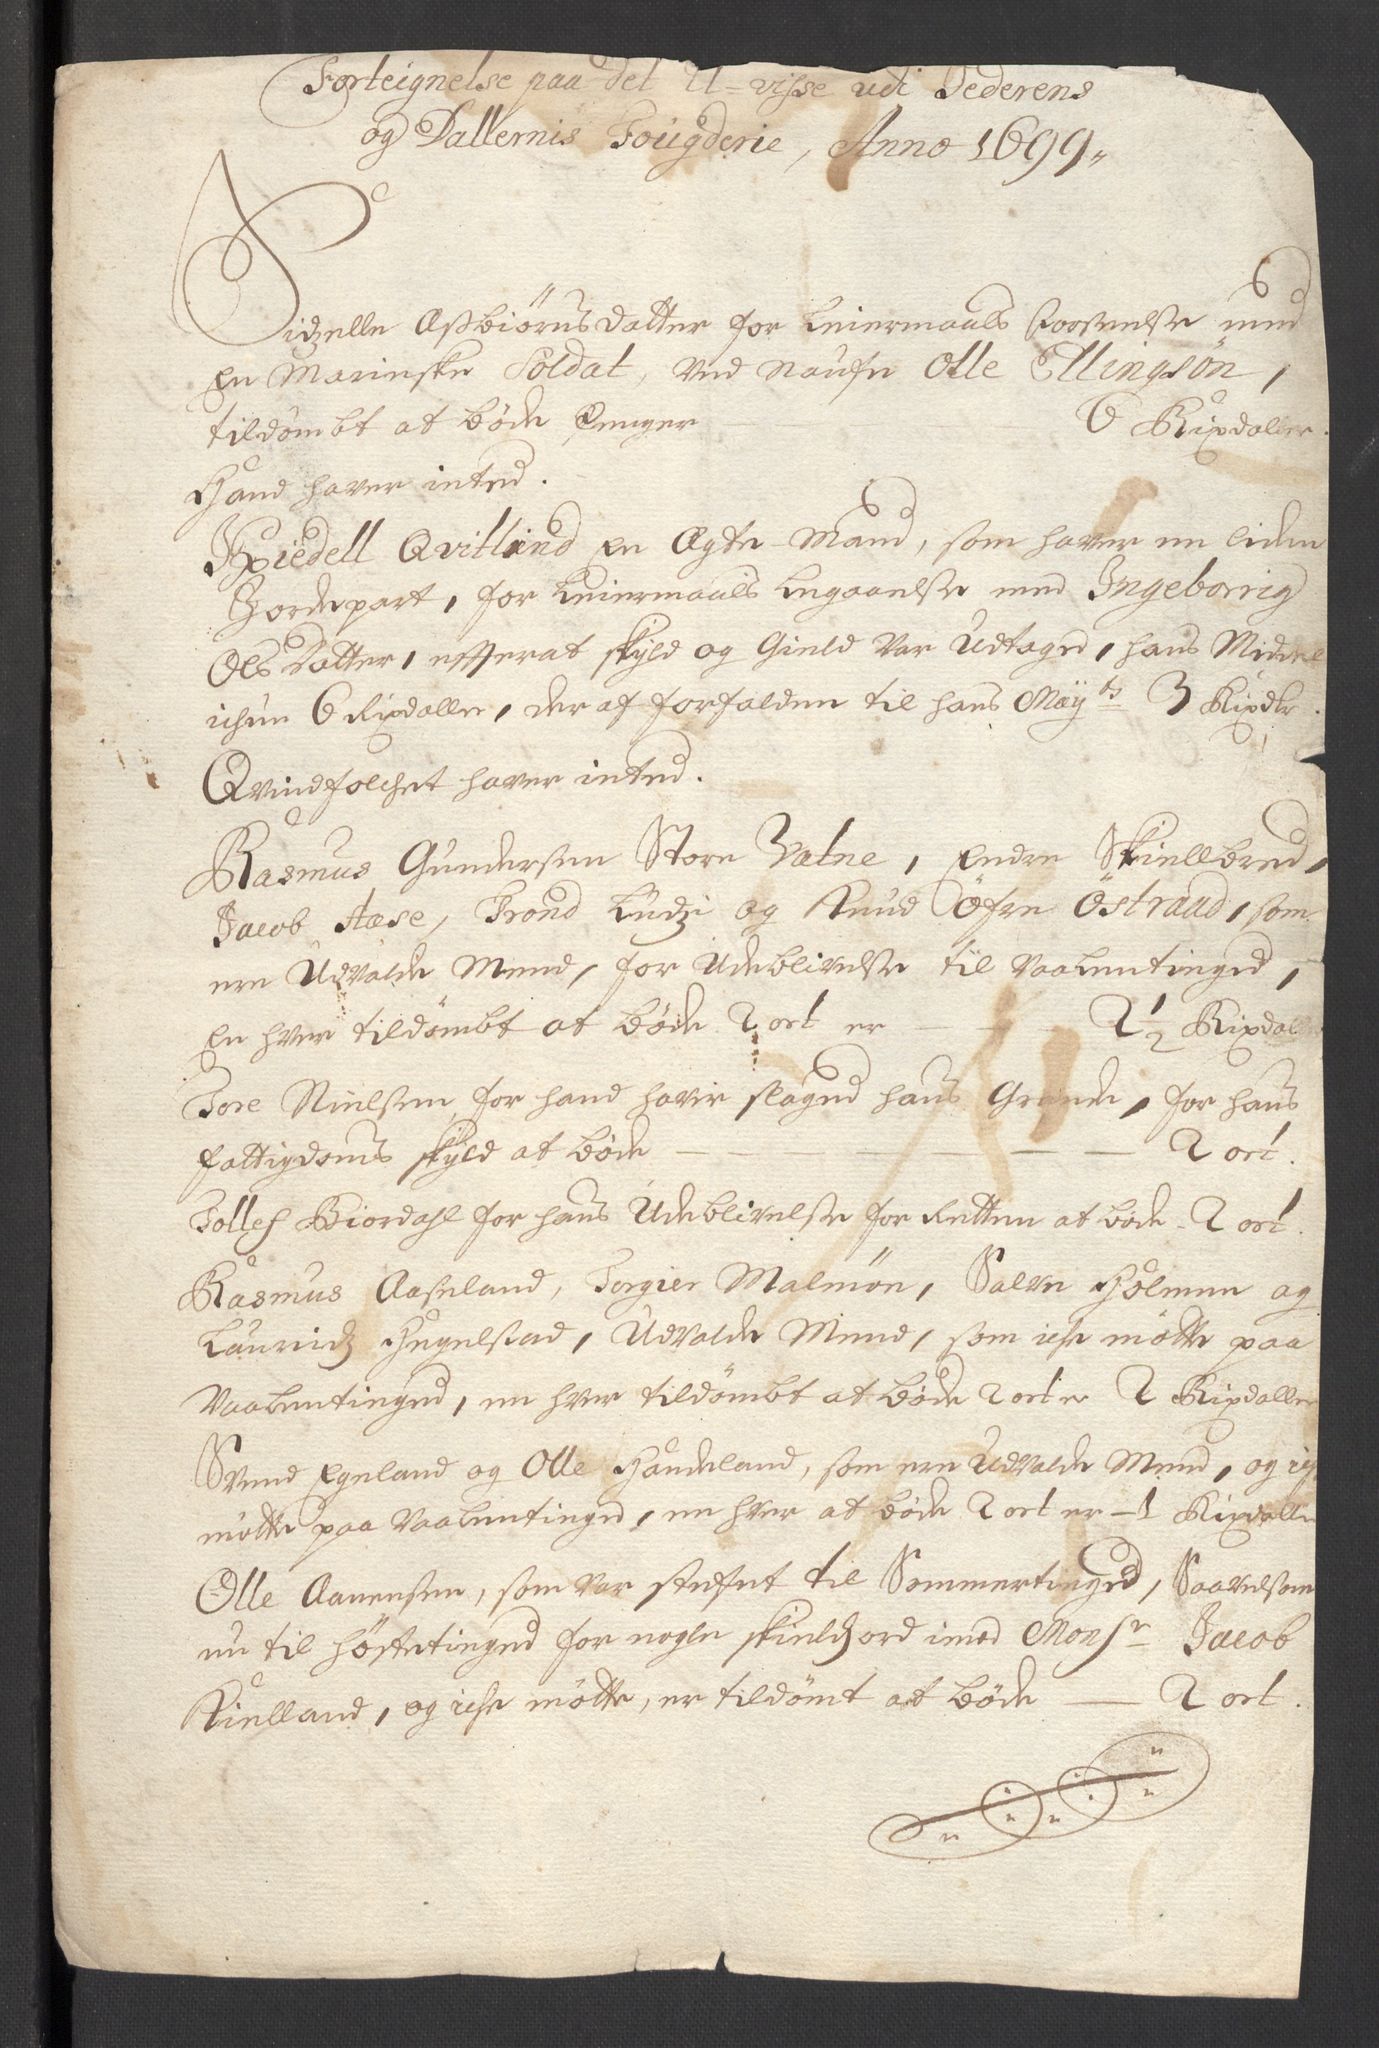 Forteignelse paa det U-visse udi Jederens
og Dallernis Fougderie, Anno 1699,,
Sidzelle Asbiørnsdatter for Leiermaals forseelse med
en Marinske Soldat, ved naufn Olle Ellingsøn,
tildømbt at bøde Penger 6 Rixdaller.
Hand hafver inted.
Kiedell Qvitland en Ægte-Mand, som hafver en liden
Jordepart, for Leiermaals begaaelse med Ingeborrig
Ols Datter, efferat skyld og Gield var Udtaged, hans Middel
ichun 6 Rixdaller, der af forfalden til hans Mayts 3 Rixdlr.
Qvindfolchet hafver inted.
Rasmus Gundersen Store Vatne, Endre Skiellbred,
Jacob Aase, Trond Ludzi og Knud Øfre Östraad, som
ere Udvalde Mend, for Udeblivelse til Vaabentinged,
en hver tildømbt at bøde 2 ort er — — 2 1/2 Rixdall
Tore Nielsen for hand hafvir slaged hans Grande, for hans
fattigdoms skyld at bøde — — — 2 ort.
Tollef Biordahl for hans Udeblivelse for Retten at bøde - 2 ort.
Rasmus Aaseland, Torgier Malmøn, Salve Holmen og
Lauridz Hegelstad, Udvalde Mend, som iche møtte paa
Vaabentinged, en hver tildømbt at bøde 2 ort er 2 Rixdaller
Svend Egeland og Olle Haadeland, som ere Udvalde Mend, og ich
møtte paa Vaabentinged, en hver at bøde 2 ort er — 1 Rixdaller
Olle Aanensen, som var stefnt til Sommertinged, Saavelsom
nu til høstetinged for nogle skieldzord imod Monsr Jacob
Kielland, og iche møtte, er tildømt at bøde — 2 ort.